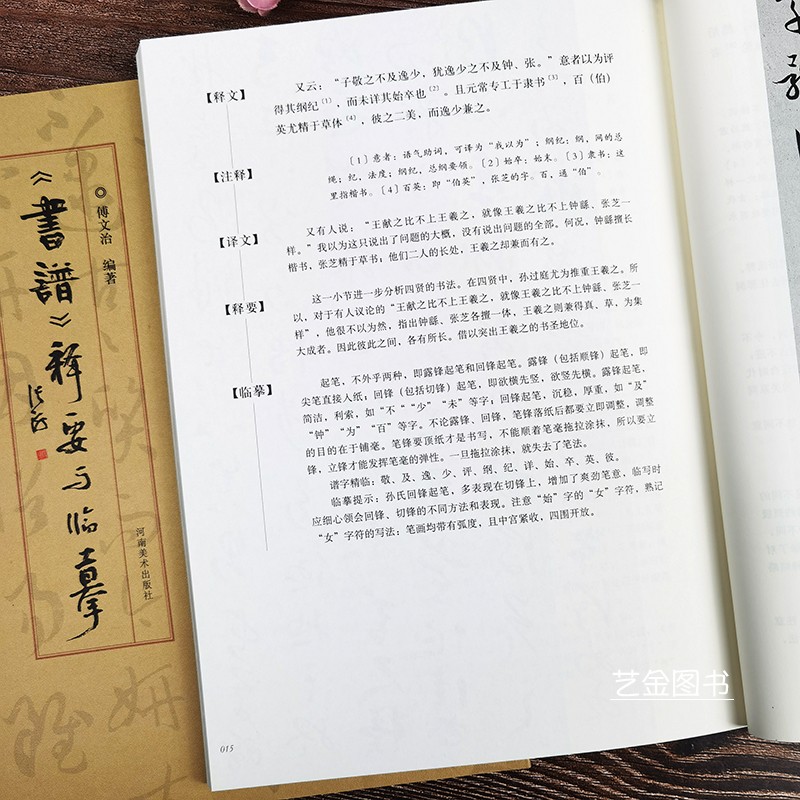 《書譜》釋要与临摹
傅文治 编著
河南美术出版社
【释文】
又云：“子敬之不及逸少，犹逸少之不及钟、张。”意者以为评
得其纲纪[1]，而未详其始卒也[2]。且元常专工于隶书[3]，百（伯）
英尤精于草体[4]，彼之二美，而逸少兼之。
【注释】
[1]意者：语气助词，可译为“我以为”；纲纪：纲，网的总
绳；纪，法度；纲纪，总纲要领。[2]始卒：始末。[3]隶书：这
里指楷书。[4]百英：即“伯英”，张芝的字。百，通“伯”。
【译文】
又有人说：“王献之比不上王羲之，就像王羲之比不上钟繇、张芝一
样。”我以为这只说出了问题的大概，没有说出问题的全部。何况，钟繇擅长
楷书，张芝精于草书；他们二人的长处，王羲之却兼而有之。
【释要】
这一小节进一步分析四贤的书法。在四贤中，孙过庭尤为推重王羲之。所
以，对于有人议论的“王献之比不上王羲之，就像王羲之比不上钟繇、张芝一
样”，他很不以为然，指出钟繇、张芝各擅一体，王羲之则兼得真、草，为集
大成者。因此彼此之间，各有所长。借以突出王羲之的书圣地位。
【临摹】
起笔，不外乎两种，即露锋起笔和回锋起笔。露锋（包括顺锋）起笔，即
尖笔直接入纸；回锋（包括切锋）起笔，即欲横先竖，欲竖先横。露锋起笔，
简洁，利索，如“不”“少”“未”等字；回锋起笔，沉稳，厚重，如“及”
“钟”“为”“百”等字。不论露锋、回锋，笔锋落纸后都要立即调整，调整
的目的在于铺毫。笔锋要顶纸才是书写，不能顺着笔毫拖拉涂抹，所以要立
锋，立锋才能发挥笔毫的弹性。一旦拖拉涂抹，就失去了笔法。
谱字精临：敬、及、逸、少、评、纲、纪、详、始、卒、英、彼。
临摹提示：孙氏回锋起笔，多表现在切锋上，增加了爽劲笔意，临写时
应细心领会回锋、切锋的不同方法和表现。注意“始”字的“女”字符，熟记
“女”字符的写法：笔画均带有弧度，且中宫紧收，四围开放。
015
艺金图书